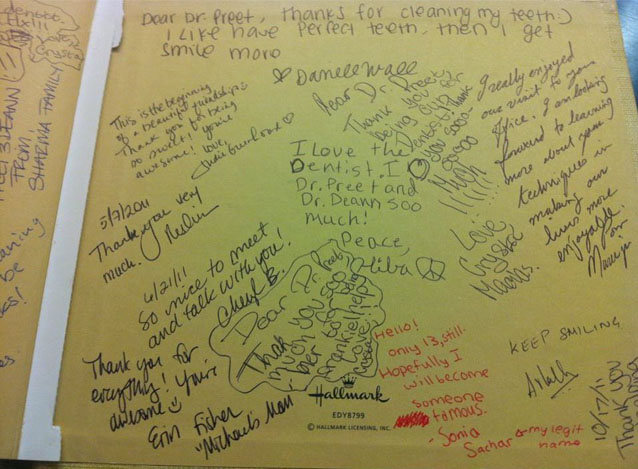 Dear Dr. Preet, thanks for cleaning my teeth:)
I like have perfect teeth, then I get
smile more
♡ Danell Wall
This is the beginning
of a beautiful friendship
Thank you for being
so sweet! You're
awesome! love,
Dear Dr. Preet
Thank you for
being our
Dentist
Thank
you sooo
soooooo
Much
!!!!!!
Love
Crystal
I really enjoyed
our visit to your
office. I am looking
forward to learning
more about your
techniques in
making our
lives more
enjoyable.
I love the
Dentist. I ♡
Dr. Preet and
Dr. Deann soo
much!
Peace,
Hiba ☮
5/7/2011
Thank you very
much.
6/21/11
So nice to meet
and talk with you!
Cheryl B.
Dear Dr. Preet
Thank
you soo
much
Thank you for
everything! You're
awesome
Erin Fisher
"Michael's Mom"
Hello!
only 13, still.
Hopefully I
will become
someone
famous.
- Sonia
Sachar
←my legit
name
KEEP SMILING
10/17/11
Thank you
Hallmark
EDY8799
© HALLMARK LICENSING, INC.
FROM,
SHARMA FAMILY